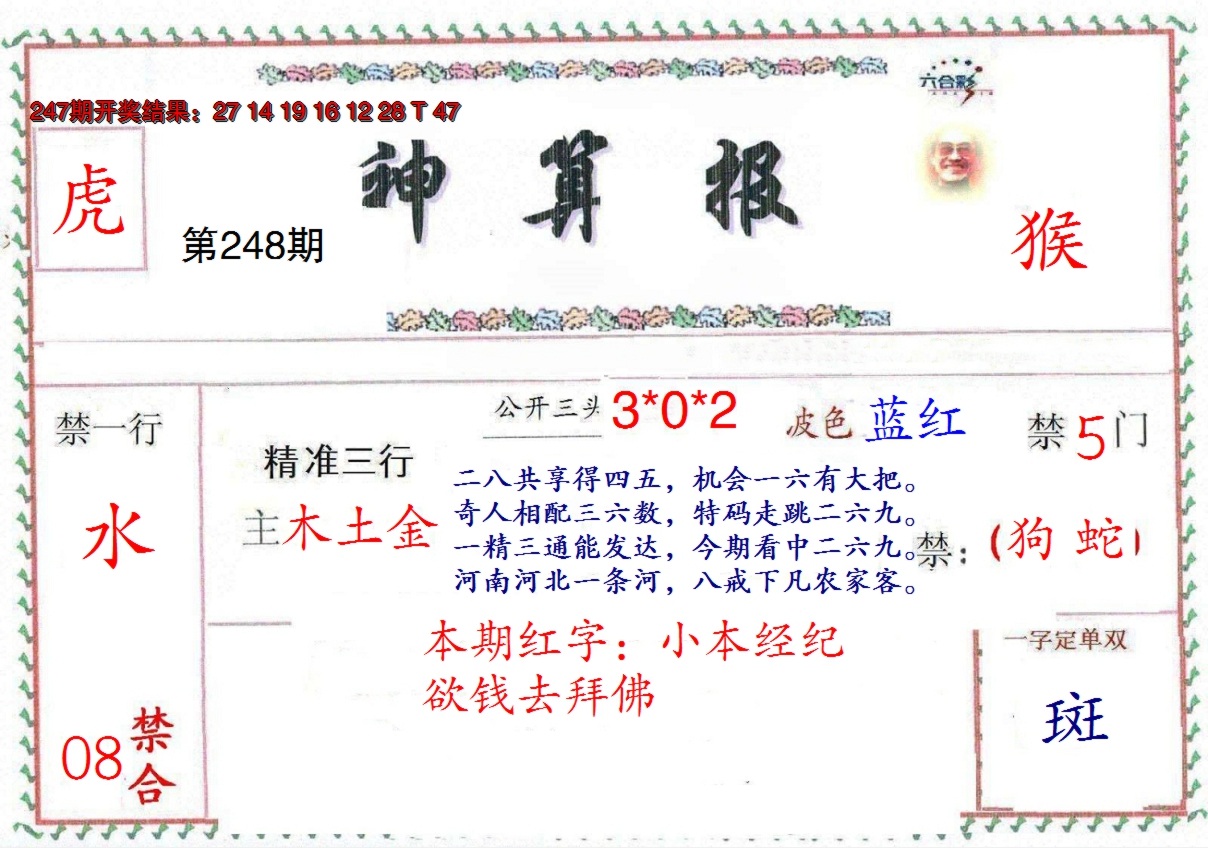 六合彩
247期开奖结果：27 14 19 16 12 28 T 47
虎
神算报
第248期
猴
禁一行
水
08
禁合
公开三头 3*0*2
波色 蓝红
禁5门
精准三行
主木土金
二八共享得四五，机会一六有大把。
奇人相配三六数，特码走跳二六九。
一精三通能发达，今期看中二六九。
河南河北一条河，八戒下凡农家客。
禁：(狗 蛇)
本期红字：小本经纪
欲钱去拜佛
一字定单双
斑